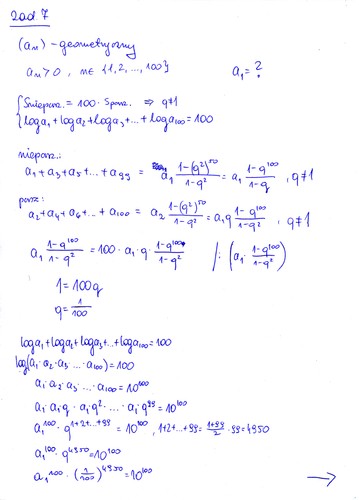 Zad. 7
(aₙ) - geometryczny
aₙ > 0 , n ∈ {1, 2, ..., 100} a₁ = ?
{ Snieparz. = 100 · Sparz. ⇒ q ≠ 1
log a₁ + log a₂ + log a₃ + ... + log a₁₀₀ = 100
nieparz.:
a₁ + a₃ + a₅ + ... + a₉₉ = a₁ (1-(q²)⁵⁰)/(1-q²) = a₁ (1-q¹⁰⁰)/(1-q) , q ≠ 1
parz:
a₂ + a₄ + a₆ + ... + a₁₀₀ = a₂ (1-(q²)⁵⁰)/(1-q²) = a₁q (1-q¹⁰⁰)/(1-q²) , q ≠ 1
a₁ (1-q¹⁰⁰)/(1-q²) = 100 · a₁ · q · (1-q¹⁰⁰)/(1-q²) /: (a₁ · (1-q¹⁰⁰)/(1-q²))
1 = 100q
q = 1/100
log a₁ + log a₂ + log a₃ + ... + log a₁₀₀ = 100
log(a₁ · a₂ · a₃ · ... · a₁₀₀) = 100
a₁ · a₂ · a₃ · ... · a₁₀₀ = 10¹⁰⁰
a₁ · a₁q · a₁q² · ... · a₁q⁹⁹ = 10¹⁰⁰
a₁¹⁰⁰ · q¹⁺²⁺···⁺⁹⁹ = 10¹⁰⁰ , 1+2+...+99 = (1+99)/2 · 99 = 4950
a₁¹⁰⁰ · q⁴⁹⁵⁰ = 10¹⁰⁰
a₁¹⁰⁰ · (1/100)⁴⁹⁵⁰ = 10¹⁰⁰ →